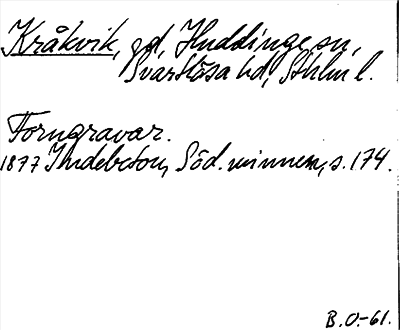 Kråkvik, gd, Huddinge sn,
Svartlösa hd, Sthlm l.
Forngravar.
1877 Indebetou, Söd. minnen, s. 174.
B.O.-61.